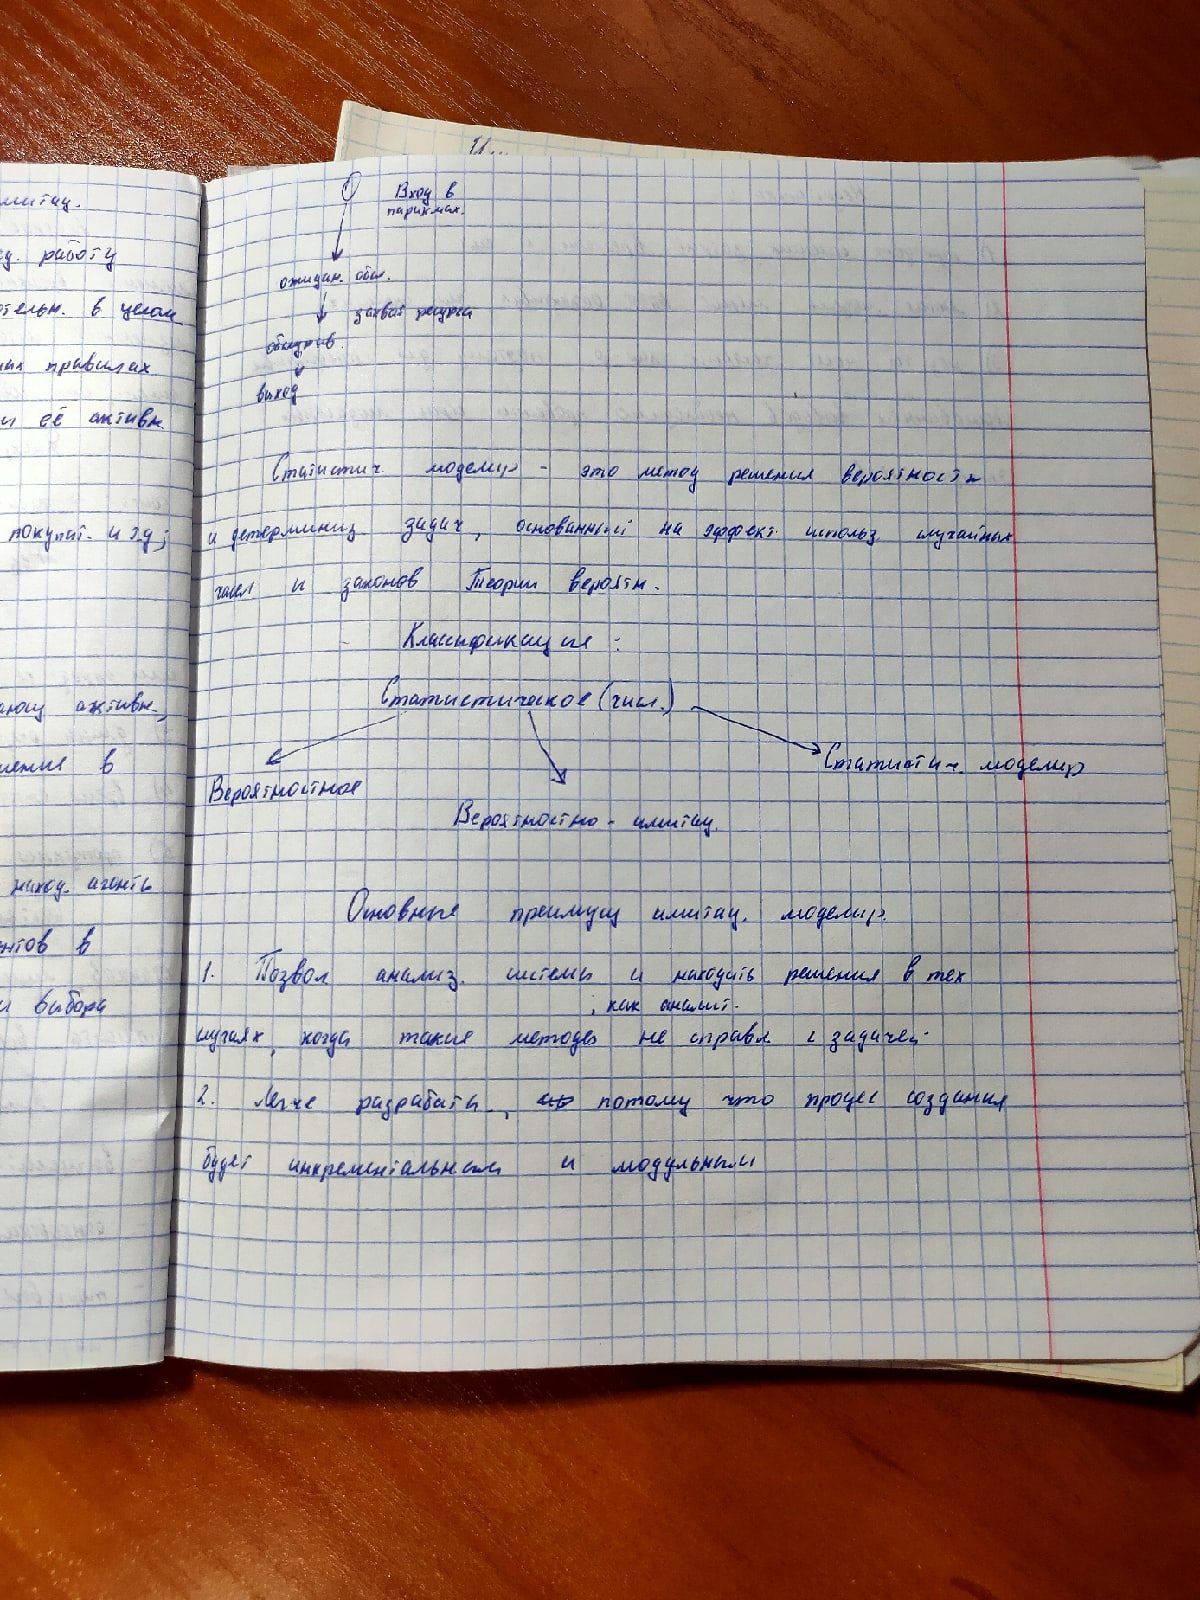 митац.
работу
в целом
правилах
её активн.
покупат. и т.д;
активн.,
в
наход. агенты
нтов в
и выбора
Вход в
парикмах.
ожидан. обсл.
захват ресурса
обслужив.
выход
Статистич моделир - это метод решения вероятностн
и детерминиз. задач, основанный на эффект. использ. случайных
чисел и законов Теории вероятн.
Классификация :
Статистическое (числ.)
Вероятностное
Вероятностно - имитац.
Статистич. моделир
Основные преимущ имитац. моделир.
1. Позвол анализ. системы и находить решения в тех
, как аналит.
случаях, когда такие методы не справл с задачей.
2. Легче разработать, потому что процес создания
будет инкрементальным и модульным